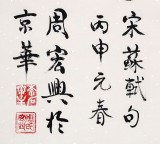 宋蘇軾句
丙申元春
周宏興於
京華